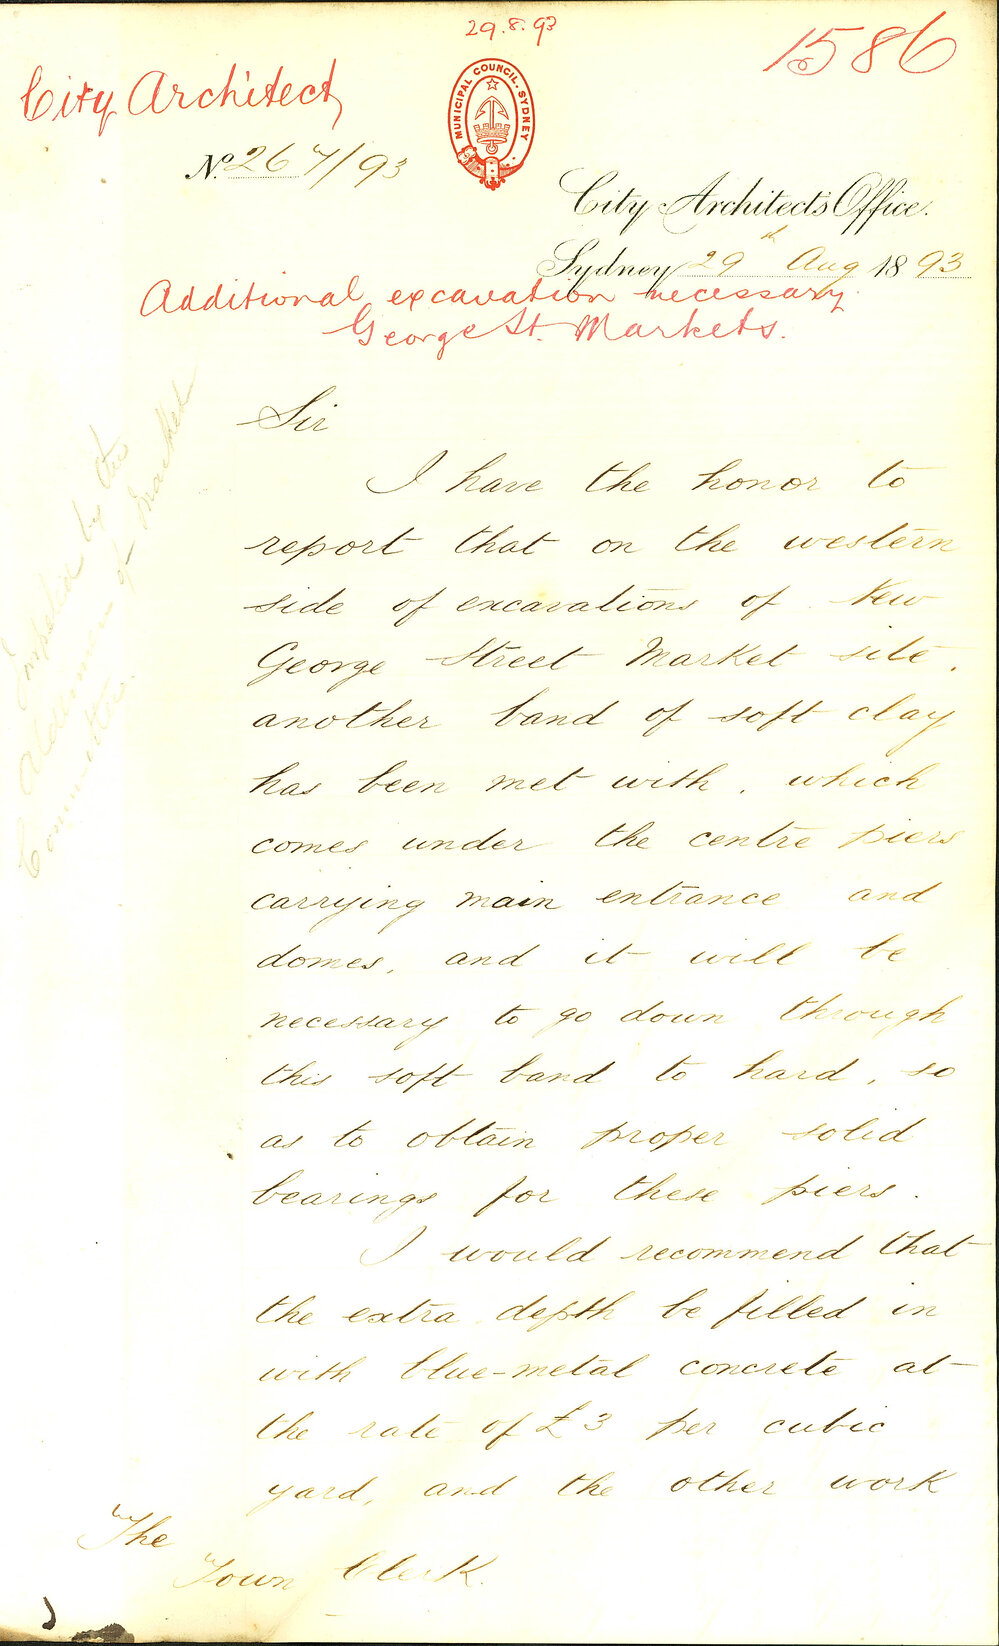 29.8.93
1586
City Architect
MUNICIPAL COUNCIL. SYDNEY
No. 267/93
City Architect's Office.
Sydney 29th Aug 1893
Additional excavation necessary.
George St. Markets.
Sir
I have the honor to
report that on the western
side of excavations of New
George Street Market site,
another band of soft clay
has been met with, which
comes under the centre piers
carrying main entrance and
domes, and it will be
necessary to go down through
this soft band to hard, so
as to obtain proper solid
bearings for these piers.
I would recommend that
the extra depth be filled in
with blue-metal concrete at
the rate of £3 per cubic
yard, and the other work
The
Town Clerk.
Inspected by the
Aldermen of Market
Committee.